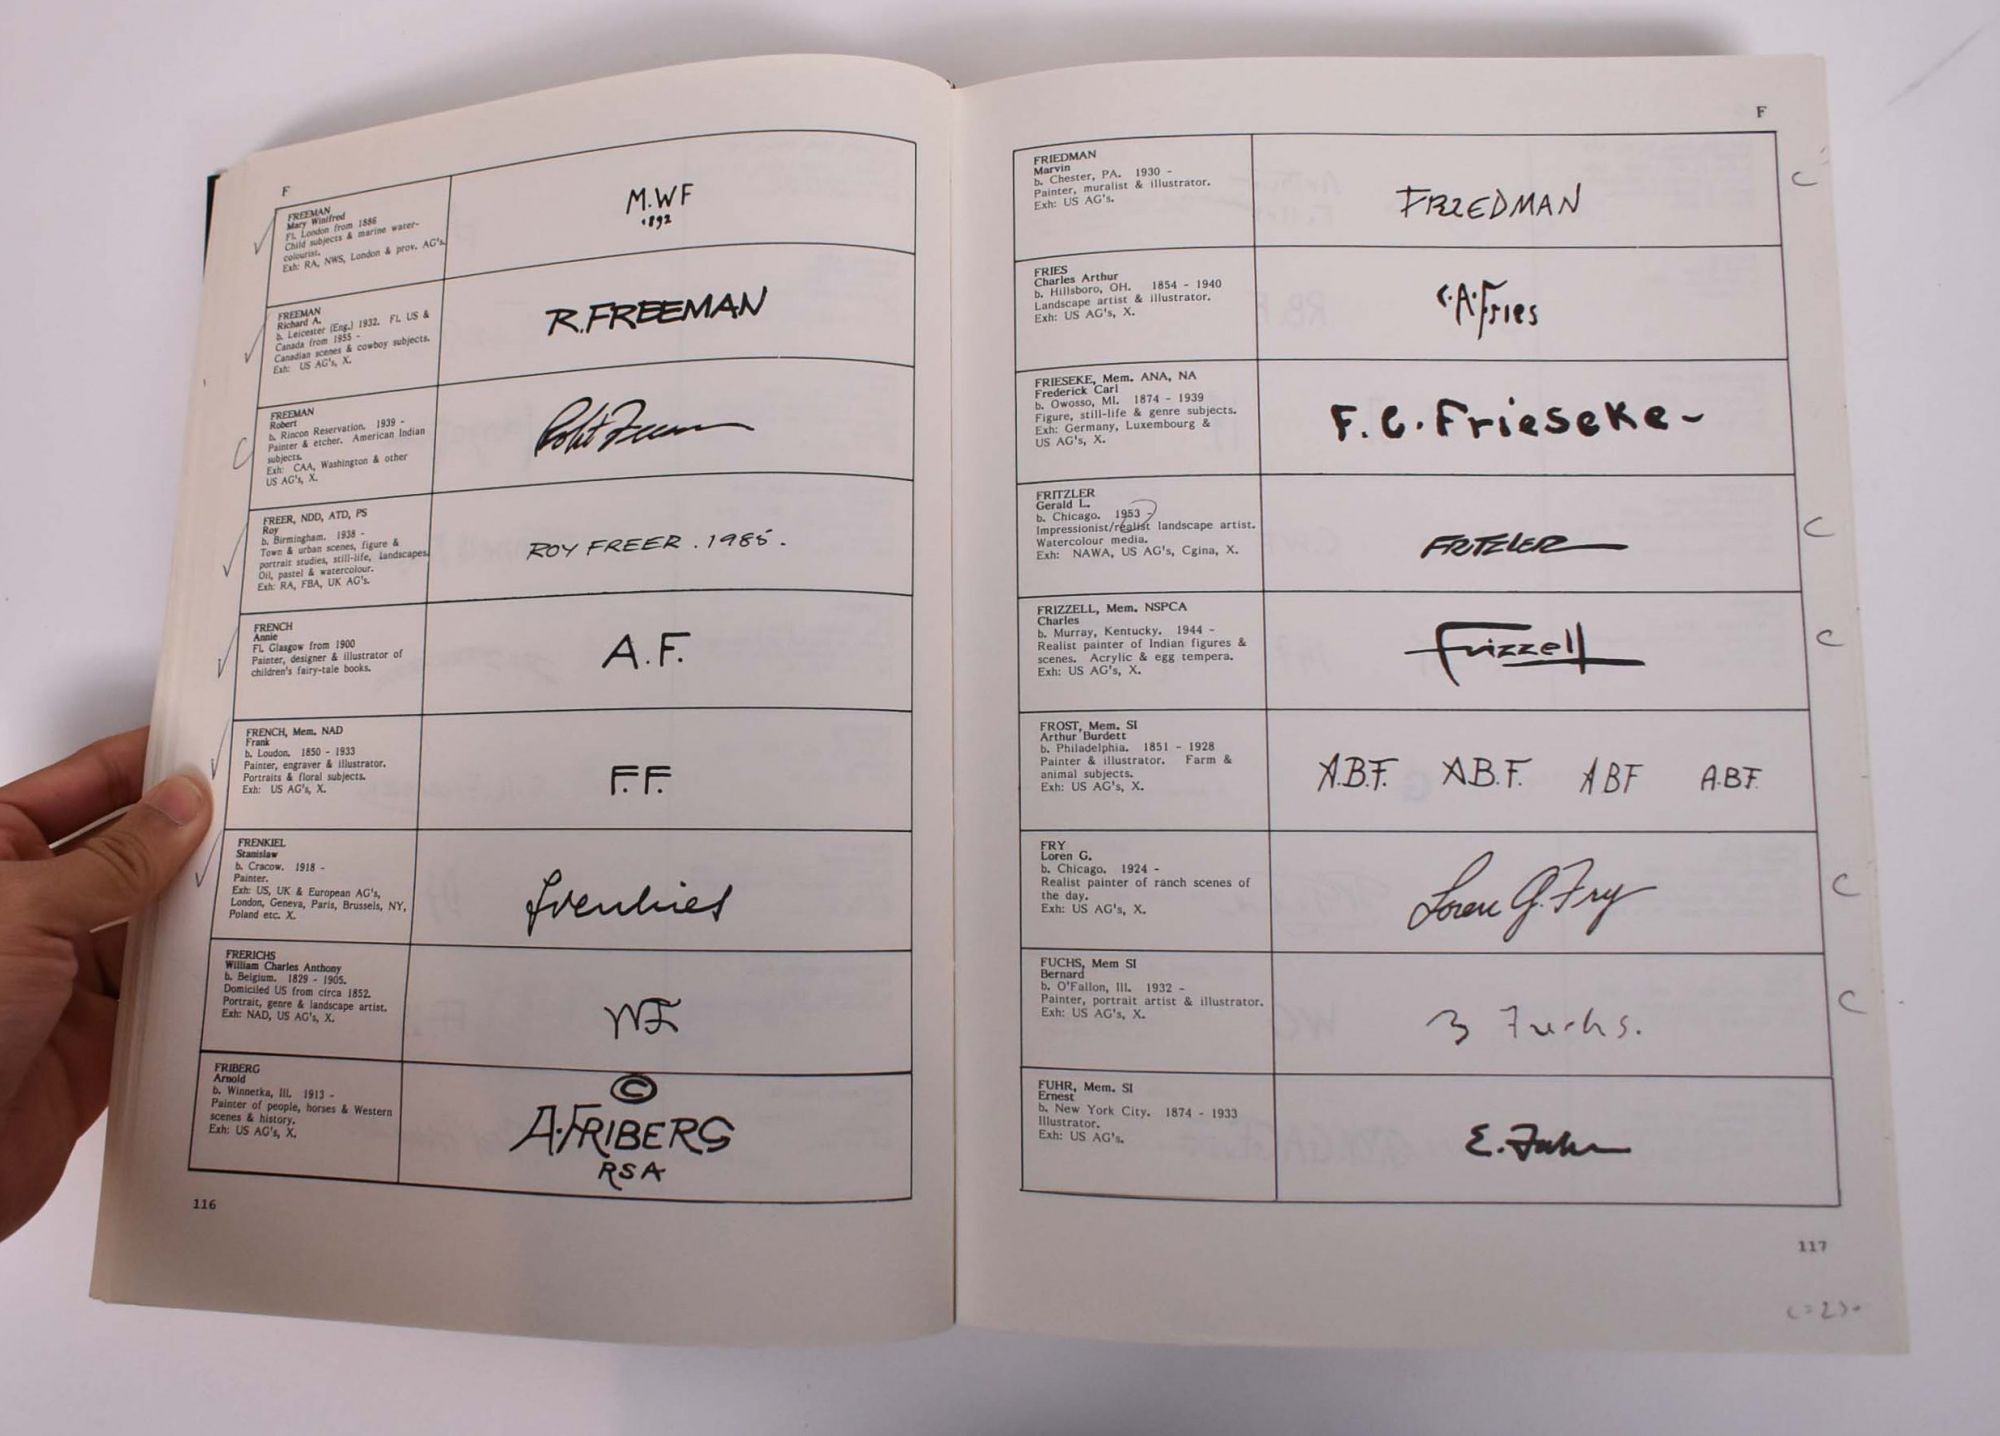 F
FREEMAN
Mary Winifred
Fl. London from 1886
Child subjects & marine water-
colourist.
Exh: RA, NWS, London & prov. AG's.
M.WF
1892
FREEMAN
Richard A.
b. Leicester (Eng.) 1932. Fl. US &
Canada from 1955 -
Canadian scenes & cowboy subjects.
Exh: US AG's, X.
R.FREEMAN
FREEMAN
Robert
b. Rincon Reservation. 1939 -
Painter & etcher. American Indian
subjects.
Exh: CAA, Washington & other
US AG's, X.
C
FREER, NDD, ATD, PS
Roy
b. Birmingham. 1938 -
Town & urban scenes, figure &
portrait studies, still-life, landscapes.
Oil, pastel & watercolour.
Exh: RA, FBA, UK AG's.
ROY FREER . 1985.
FRENCH
Annie
Fl. Glasgow from 1900
Painter, designer & illustrator of
children's fairy-tale books.
A.F.
FRENCH, Mem. NAD
Frank
b. Loudon. 1850 - 1933
Painter, engraver & illustrator.
Portraits & floral subjects.
Exh: US AG's, X.
F.F.
FRENKIEL
Stanislaw
b. Cracow. 1918 -
Painter.
Exh: US, UK & European AG's,
London, Geneva, Paris, Brussels, NY,
Poland etc. X.
Frenkiel
FRERICHS
William Charles Anthony
b. Belgium. 1829 - 1905.
Domiciled US from circa 1852.
Portrait, genre & landscape artist.
Exh: NAD, US AG's, X.
WF
FRIBERG
Arnold
b. Winnetka, Ill. 1913 -
Painter of people, horses & Western
scenes & history.
Exh: US AG's, X.
©
A.FRIBERG
RSA
116
F
FRIEDMAN
Marvin
b. Chester, PA. 1930 -
Painter, muralist & illustrator.
Exh: US AG's.
FRIEDMAN
C
FRIES
Charles Arthur
b. Hillsboro, OH. 1854 - 1940
Landscape artist & illustrator.
Exh: US AG's, X.
C.A.Fries
FRIESEKE, Mem. ANA, NA
Frederick Carl
b. Owosso, MI. 1874 - 1939
Figure, still-life & genre subjects.
Exh: Germany, Luxembourg &
US AG's, X.
F.C.Frieseke-
FRITZLER
Gerald L.
b. Chicago. 1953 -
Impressionist/realist landscape artist.
Watercolour media.
Exh: NAWA, US AG's, Cgina, X.
FRITZLER
C
FRIZZELL, Mem. NSPCA
Charles
b. Murray, Kentucky. 1944 -
Realist painter of Indian figures &
scenes. Acrylic & egg tempera.
Exh: US AG's, X.
Frizzell
C
FROST, Mem. SI
Arthur Burdett
b. Philadelphia. 1851 - 1928
Painter & illustrator. Farm &
animal subjects.
Exh: US AG's, X.
A.B.F. A.B.F. ABF A.B.F.
FRY
Loren G.
b. Chicago. 1924 -
Realist painter of ranch scenes of
the day.
Exh: US AG's, X.
Loren G. Fry
C
FUCHS, Mem SI
Bernard
b. O'Fallon, Ill. 1932 -
Painter, portrait artist & illustrator.
Exh: US AG's, X.
B Fuchs.
C
FUHR, Mem. SI
Ernest
b. New York City. 1874 - 1933
Illustrator.
Exh: US AG's.
E. Fuhr
117